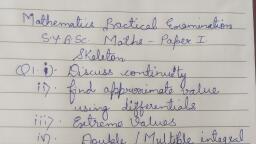 Mathematics Practical Examination
S.Y.B.Sc. Maths - Paper I
Skeleton
Q1. i) Discuss continuity
ii) find approximate value
using differentials
iii) Extreme values
iv) Double / Multiple integral